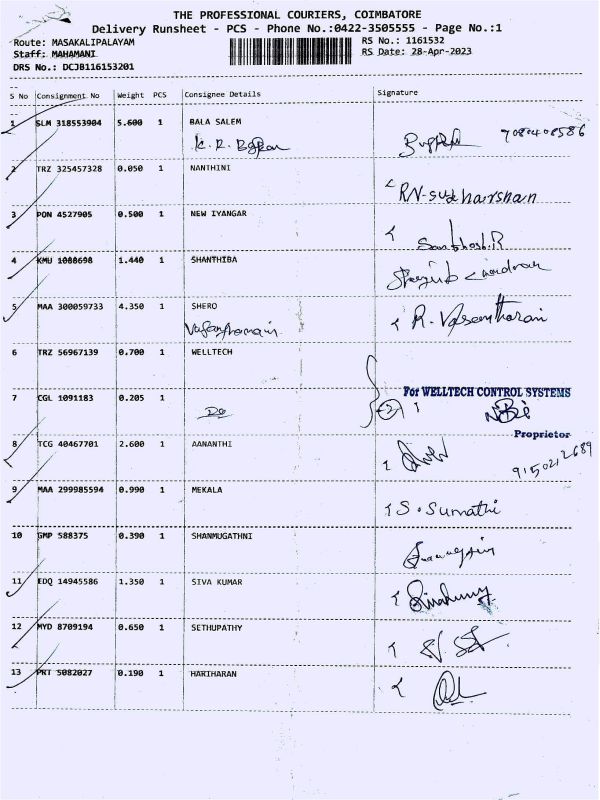 THE PROFESSIONAL COURIERS, COIMBATORE
Delivery Runsheet - PCS - Phone No.:0422-3505555 - Page No.:1
Route: MASAKALIPALAYAM RS No.: 1161532
Staff: MAHAMANI RS Date: 28-Apr-2023
DRS No.: DCJB116153201
S No Consignment No Weight PCS Consignee Details Signature
1 SLM 318553904 5.600 1 BALA SALEM
K. R. 7080408586
2 TRZ 325457328 0.050 1 NANTHINI
RN-sudharshan
3 PON 4527905 0.500 1 NEW IYANGAR
Santhosh.R
4 KMU 1088698 1.440 1 SHANTHIBA
5 MAA 300059733 4.350 1 SHERO
R. Vasantharani
6 TRZ 56967139 0.700 1 WELLTECH
For WELLTECH CONTROL SYSTEMS
7 CGL 1091183 0.205 1
Do 2
Proprietor
8 TCG 40467701 2.600 1 AANANTHI
9150212689
9 MAA 299985594 0.990 1 MEKALA
S. Sumathi
10 GMP 588375 0.390 1 SHANMUGATHNI
11 EDQ 14945586 1.350 1 SIVA KUMAR
12 MYD 8709194 0.650 1 SETHUPATHY
13 PRT 5082027 0.190 1 HARIHARAN